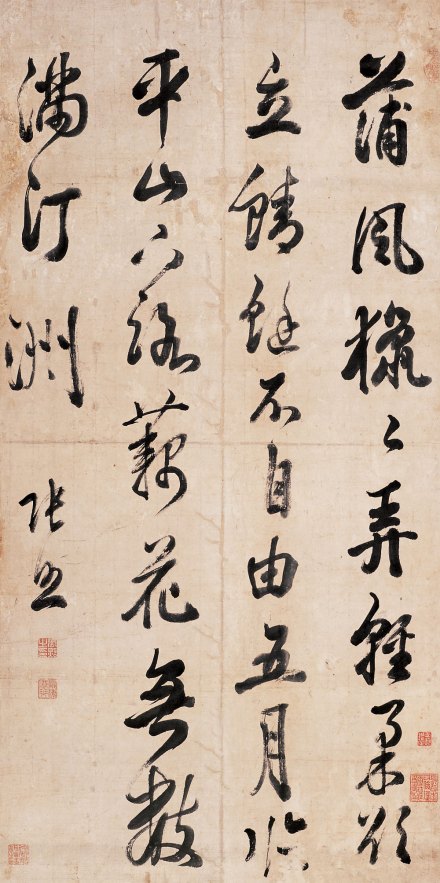 蒲風獵〻弄輕柔欲
立蜻蜓不自由五月臨
平山下路藕花無數
滿汀洲
張照